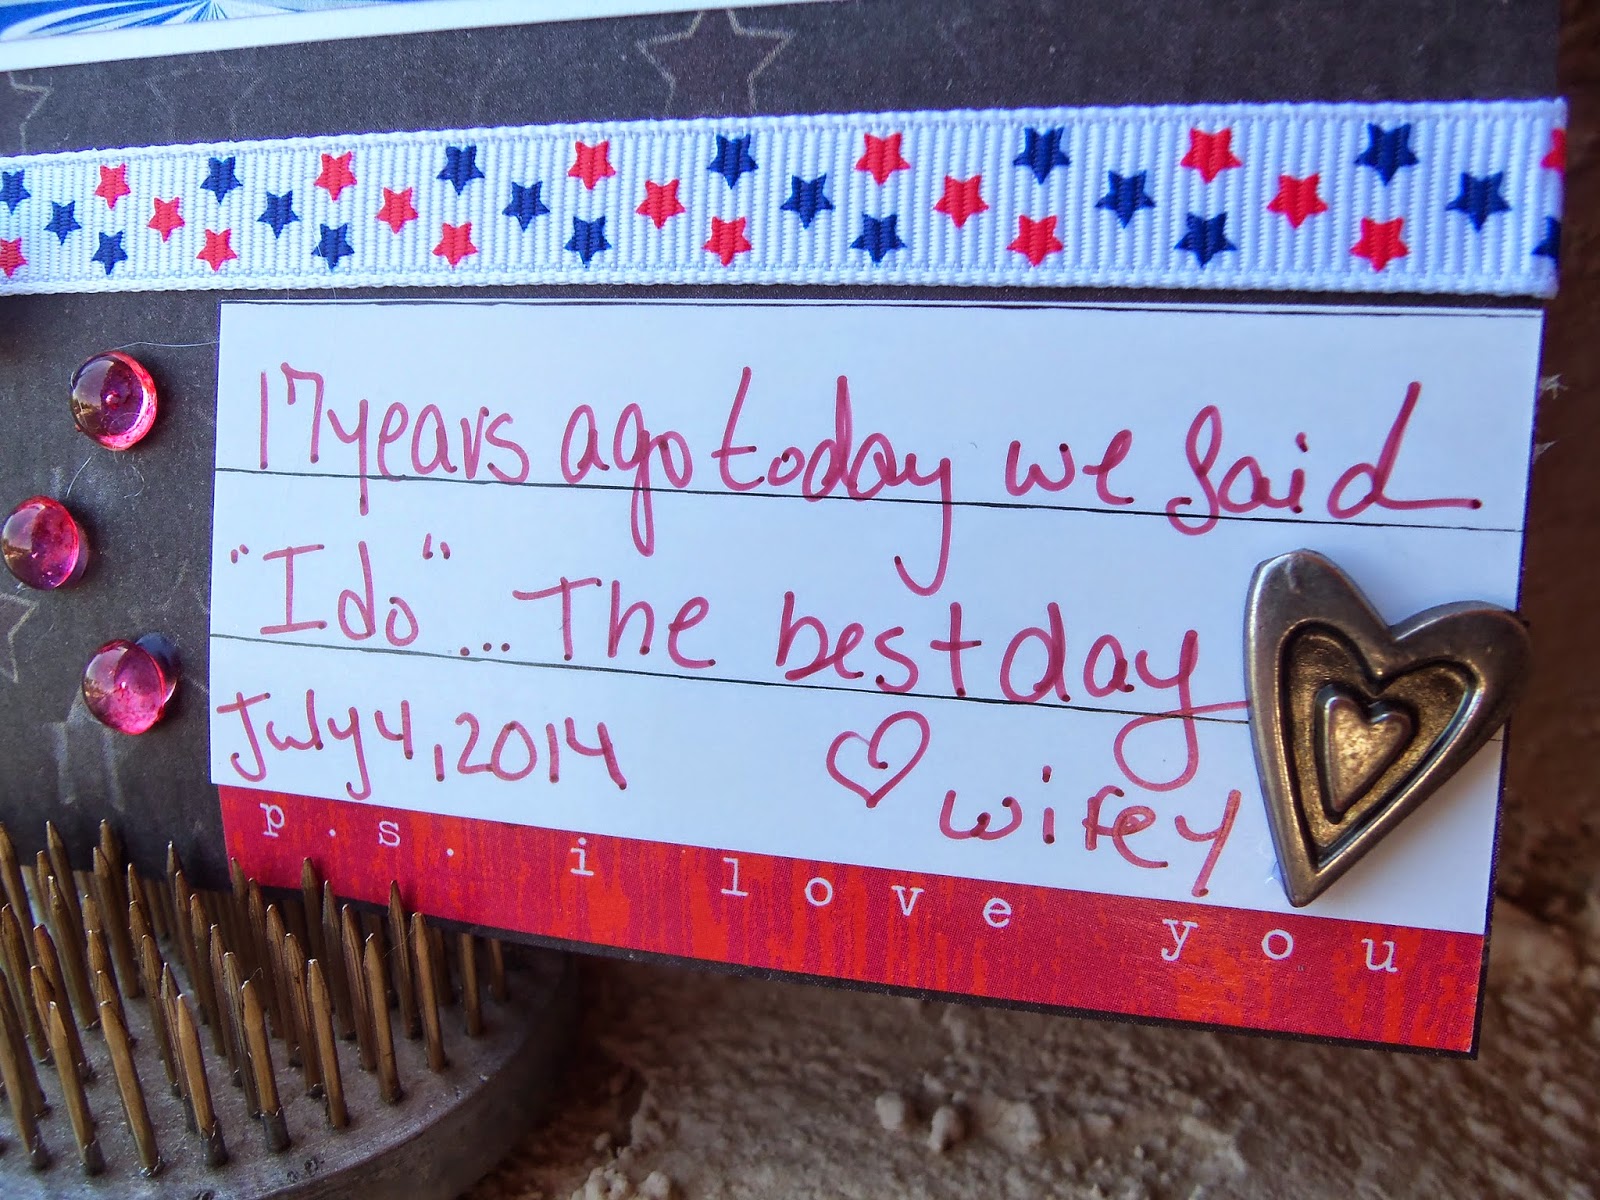 17 years ago today we said
"I do"... The best day
July 4, 2014 ♡ wifey
p.s. i love you